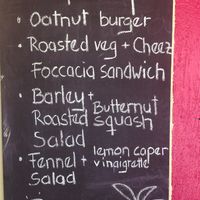 • Oatnut burger
• Roasted veg + Cheez
Foccacia sandwich
• Barley +
Roasted Butternut squash
Salad
• Fennel + lemon caper vinaigratte
Salad